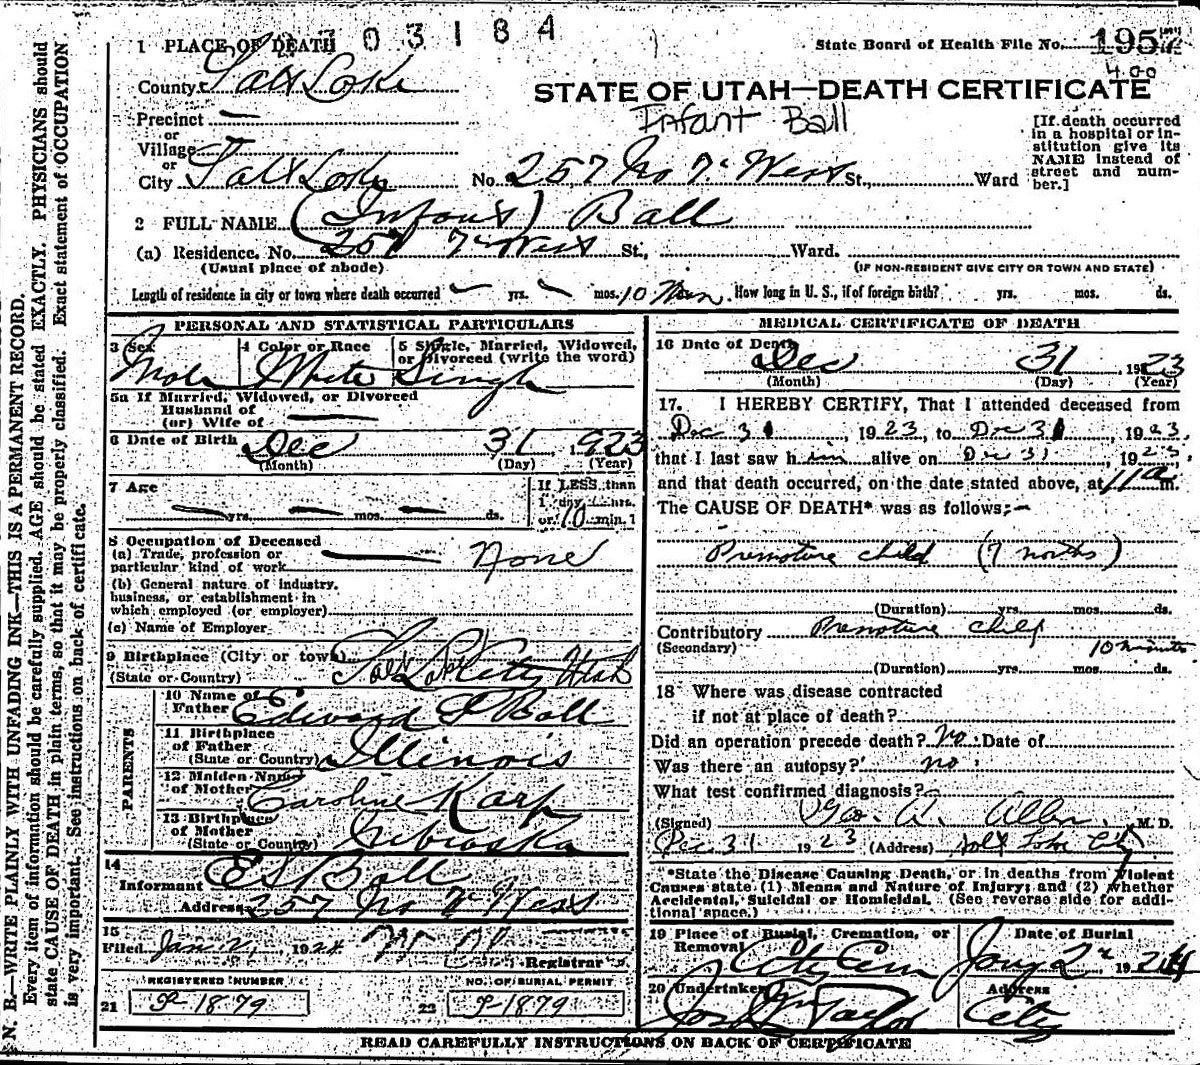 N. B.—WRITE PLAINLY WITH UNFADING INK—THIS IS A PERMANENT RECORD.
Every item of information should be carefully supplied. AGE should be stated EXACTLY. PHYSICIANS should
state CAUSE OF DEATH in plain terms, so that it may be properly classified. Exact statement of OCCUPATION
is very important. See instructions on back of certificate.
03184
1 PLACE OF DEATH
State Board of Health File No. 1957
400
County Salt Lake
STATE OF UTAH—DEATH CERTIFICATE
Infant Ball
Precinct —
or
Village
or
City Salt Lake No. 257 No 7th West St., Ward
[If death occurred
in a hospital or in-
stitution give its
NAME instead of
street and num-
ber.]
2 FULL NAME (Infant) Ball
(a) Residence. No. 257 7th West St., Ward.
(Usual place of abode) (IF NON-RESIDENT GIVE CITY OR TOWN AND STATE)
Length of residence in city or town where death occurred — yrs. — mos. 10 Min. How long in U. S., if of foreign birth? yrs. mos. ds.
PERSONAL AND STATISTICAL PARTICULARS
3 Sex 4 Color or Race 5 Single, Married, Widowed,
or Divorced (write the word)
Male White Single
5a If Married, Widowed, or Divorced
Husband of —
(or) Wife of —
6 Date of Birth Dec 31 1923
(Month) (Day) (Year)
7 Age If LESS than
1 day hrs.
— yrs. — mos. — ds. or 10 min.
8 Occupation of Deceased
(a) Trade, profession or
particular kind of work — None
(b) General nature of industry,
business, or establishment in
which employed (or employer)
(c) Name of Employer
9 Birthplace (City or town)
(State or Country) Salt Lake City Utah
PARENTS
10 Name of
Father Edward S Ball
11 Birthplace
of Father
(State or Country) Illinois
12 Maiden Name
of Mother Caroline Karp
13 Birthplace
of Mother
(State or Country) Nebraska
14
Informant E S Ball
Address 257 No 7th West
15
Filed Jan 2, 1924
Registrar
REGISTERED NUMBER NO. OF BURIAL PERMIT
21 P-1879 22 P-1879
MEDICAL CERTIFICATE OF DEATH
16 Date of Death
Dec 31, 1923
(Month) (Day) (Year)
17. I HEREBY CERTIFY, That I attended deceased from
Dec 31, 1923, to Dec 31, 1923,
that I last saw him alive on Dec 31, 1923,
and that death occurred, on the date stated above, at 11 a m.
The CAUSE OF DEATH* was as follows:—
Premature child (7 months)
(Duration) yrs. mos. ds.
Contributory Premature child
(Secondary) 10 minutes
(Duration) yrs. mos. ds.
18 Where was disease contracted
if not at place of death?
Did an operation precede death? no. Date of
Was there an autopsy? no.
What test confirmed diagnosis? —
(Signed) Geo. W. Allen, M. D.
Dec 31 1923 (Address) Salt Lake City
*State the Disease Causing Death, or in deaths from Violent
Causes state (1) Means and Nature of Injury; and (2) whether
Accidental, Suicidal or Homicidal. (See reverse side for addi-
tional space.)
19 Place of Burial, Cremation, or
Removal
Date of Burial
City Cem Jany 2nd 1924
20 Undertaker Address
Taylor City
READ CAREFULLY INSTRUCTIONS ON BACK OF CERTIFICATE